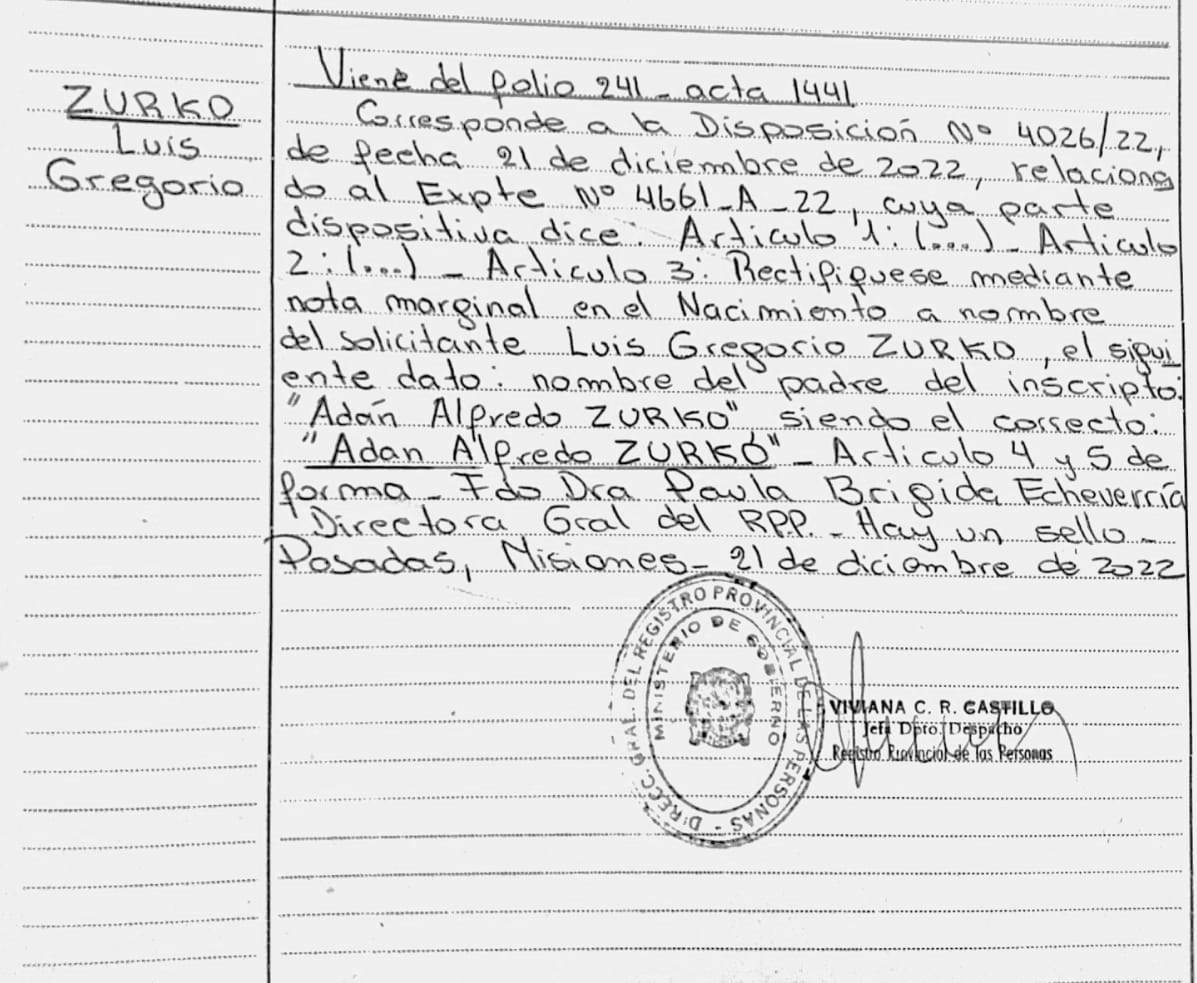 ZURKO
Luis
Gregorio
Viene del folio 241 - acta 1441
Corresponde a la Disposición Nº 4026/22,
de fecha 21 de diciembre de 2022, relaciona
do al Expte Nº 4661-A-22, cuya parte
dispositiva dice: Articulo 1: (...) - Articulo
2: (...) - Articulo 3: Rectifiquese mediante
nota marginal en el Nacimiento a nombre
del solicitante Luis Gregorio ZURKO, el sigui
ente dato: nombre del padre del inscripto:
"Adán Alfredo ZURKO" siendo el correcto:
"Adan Alfredo ZURKO" - Articulo 4 y 5 de
forma - Fdo Dra Paula Brigida Echeverría
Directora Gral del RPP. - Hay un sello -
Posadas, Misiones - 21 de diciembre de 2022
DIRECC. GRAL. DEL REGISTRO PROVINCIAL DE LAS PERSONAS -
MINISTERIO DE GOBIERNO
VIVIANA C. R. CASTILLO
Jefa Dpto. Despacho
Registro Provincial de las Personas